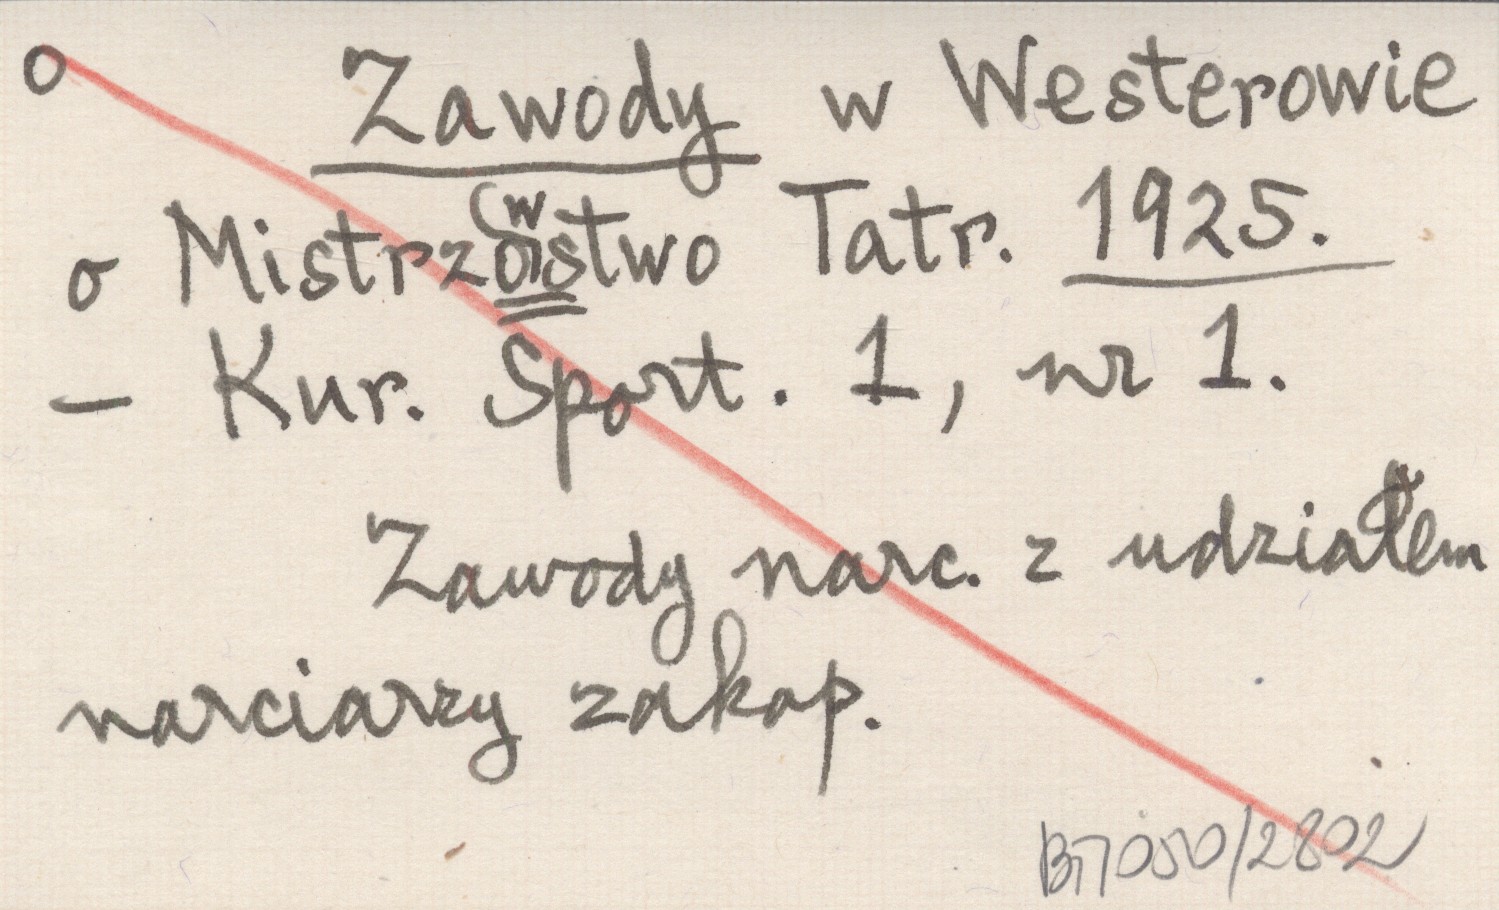 o Zawody w Westerowie
o Mistrzowstwo Tatr. 1925.
– Kur. Sport. 1, nr 1.
Zawody narc. z udziałem
narciarzy zakop.
B77050/2802